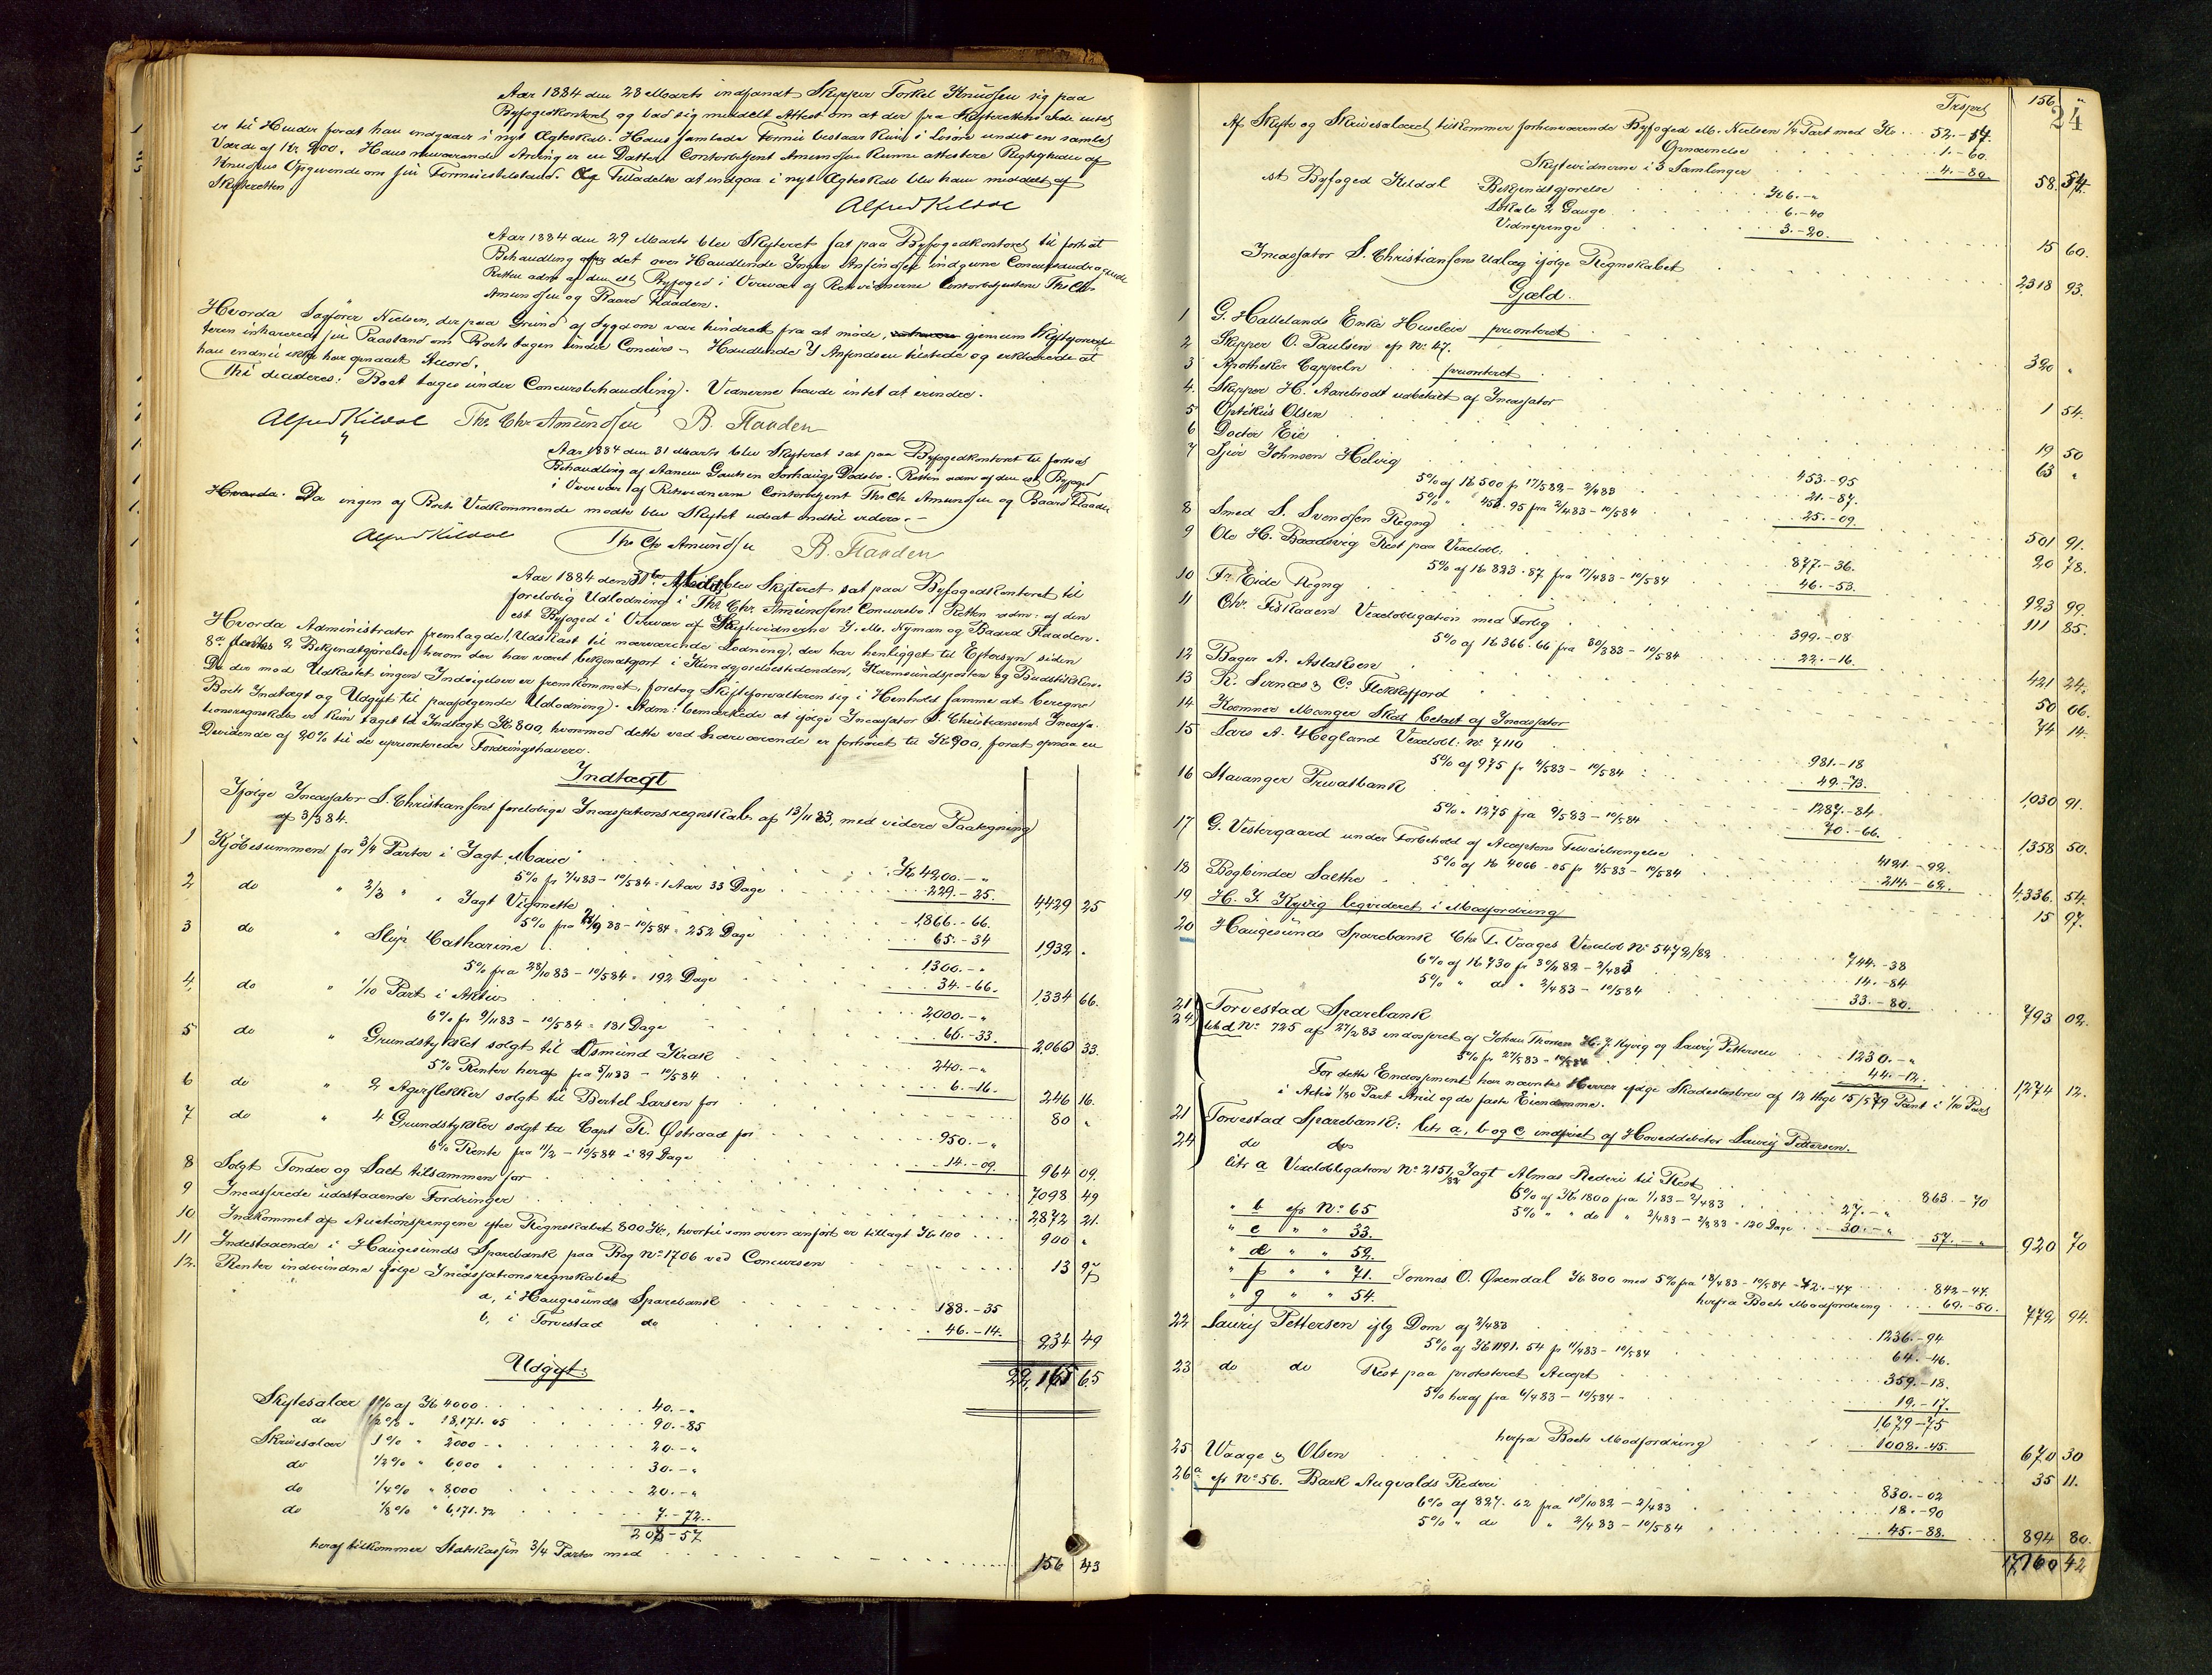 Aar 1884 den 28 Marts indfandt Skipper Torkel Knudsen sig paa
Byfogedkontoret og bad sig meddelt Attest om at der fra Skifterettens Side intet
er til Hinder forat han indgaaer i nyt Ægteskab. Hans samlede Formue bestaar kun i Løsøre under en samlet
Værdi af Kr 200. Hans nuværende Arving er en Datter. Contorbetjent Amundsen kunne attestere Rigtigheden af
Knudsens Opgivende om sin Formuestilstand. Og Tilladelse at indgaa i nyt Ægteskab blev ham meddelt af
Skifteretten
Alfred Kildal
Aar 1884 den 29 Marts blev Skifteret sat paa Byfogedkontoret til fortsat
Behandling af det over Handlende Ansendsen indgivne Concursandragende
Retten adm af den cst Byfoged i Overvær af Retsvidnerne Contorbetjentene Ths Chr
Amundsen og Baard Flaaden.
Hvorda Sagfører Nielsen, der paa Grund af Sygdom var hindret fra at møde, gjennem Skifteforval-
teren inhærerede sin Paastand om Boets tagen under Concurs - Handlende Y Ansendsen tilstede og erklærede at
han endnu ikke har opnaaet Accord.
Thi decideres: Boet tages under Concursbehandling. Vidnerne havde intet at erindre.
Alfred Kildal Ths Chr Amundsen B. Flaaden
Aar 1884 den 31 Marts blev Skifteret sat paa Byfogedkontoret til fortsat
Behandling af Aanen Gautsen Sørhaugs Dødsbo. Retten adm af den cst Byfoged
i Overvær af Retsvidnerne Contorbetjent Ths Chr Amundsen og Baard Flaaden
Hvorda. Da ingen af Boets Vedkommende mødte blev Skiftet udsat indtil videre.-
Alfred Kildal Ths Chr Amundsen B. Flaaden
Aar 1884 den 31te blev Skifteret sat paa Byfogedkontoret til
foreløbig Udlodning i Ths. Chr. Amundsens Concursbo. Retten adm. af den
cst Byfoged i Overvær af Skiftevidnerne Y. M. Nyman og Baard Flaaden.
Hvorda Administrator fremlagde Udkast til nærværende Lodning, der har henligget til Eftersyn siden
8de dennes & Bekjendtgjørelse herom der har været bekjendtgjort i Kundgjørelsestidenden, Karmsundsposten og Budstikken.
Da der mod Udkastet ingen Indsigelser er fremkommet, foretog Skifteforvalteren sig i Henhold samme at beregne
Boets Indtægt og Udgift til paafølgende Udlodning. Adm: bemærkede at ifølge Incassator S. Christiansens Incassa-
tionsregnskab er kun taget til Indtægt Kr 800, hvormod dette ved Nærværende er forhøiet til Kr 900, forat opnaa en
Dividende af 20% til de uprioriterede Fordringshavere.
Indtægt
Ifølge Incassator S. Christiansens foreløbige Incassationsregnskab af 13/11 83, med videre Paategning
af 3/3 84.
1 Kjøbesummen for 3/4 Parter i Jagt "Marie" Kr 4200.-"
5% fr 7/4 83 - 10/5 84 = 1 Aar 33 Dage 229.-25. 4,429 25
2 do " 2/3 " " Jagt Vignette 1,866.-66.
5% fra 83 - 10/5 84 = 252 Dage 65.-34 1,932 "
3 do " Slup Catharine 1300.-"
5% fra 28/10 83 - 10/5 84 = 192 Dage 34.-66. 1,334 66.
4 do " 1/10 Part i Aktiv 2,000.-"
6% fr 9/11 83 - 10/5 84 = 181 Dage 66.-33. 2,066 33.
5 do " Grundstykket solgt til Osmund Krak 240.-"
5% Renter heraf fra 5/11 83 - 10/5 84 6.-16. 246 16.
6 do " 2 Agerflekker solgt til Bertel Larsen for 80 "
7 do " 4 Grundstykker solgt til Capt R. Østraad for 950.-"
6% Rente fra 11/2 - 10/5 84 i 89 Dage 14.-09. 964 09.
8 Solgt Tønder og Salt tilsammen for 7098 49
9 Incasserede udestaaende Fordringer 2,872 21.
10 Indkommet af Auctionspengene efter Regnskabet 800 Kr, hvortil som oven anført er tillagt Kr 100 900 "
11 Indestaaende i Haugesunds Sparebank paa Bog No 1706 ved Concursen 13 97
12. Renter indvundne ifølge Incassationsregnskabet
a, i Haugesunds Sparebank 188.-35
b, i Torvestad do 46.-14. 234 49
22,165 65
Udgift:
Skiftesalær 1% af Kr 4000 40.-"
do 1/2% " 18,171.05 90.-85
Skrivesalær 1% " 2000 20.-"
do 1/2% " 6,000 30.-"
do 1/4% " 8000 20.-"
do 1/8% " 6,171.72 7.-72.
208-57
heraf tilkommer Statskassen 3/4 Parter med 156 43
24
Trsport 156 "
Af Skifte og Skrivesalæret tilkommer forhenværende Byfoged M. Nielsen 1/4 Part med Kr 52.-14.
Opnævnelse 1.-60.
Skiftevidnerne i 3 Samlinger 4.-80. 58. 54
cst Byfoged Kildal Bekjendtgjørelse Kr 6.-"
Lokale 2 Gange 6.-40
Vidnepenge 3.-20. 15 60.
Incassator S. Christiansens Udlæg ifølge Regnskabet 2,318 93.
Gjæld.
1 G. Hallelands Enke Husleie prioriteret 320 "
2 Skipper O. Paulsen cfr No 47.
3 Apotheker Cappeln prioriteret 1 54.
4. Skipper H. Aarebrodt udbetalt af Incassator
5 Optikus Olsen 19 50
6 Doctor Eie 63 "
7 Sjur Johnsen Helvig 453.-95
5% af Kr 500 fr 17/5 82 - 2/4 83 21.-87.
5% " 453.95 fra 2/4 83 - 10/5 84 25.-09. 501 91.
8 Smed S. Svendsen Regng 20 78.
9 Ole H. Baadsvig Rest paa Vexelobl: 877.-36.
5% af Kr 823.87 fra 17/4 83 - 10/5 84 46.-53. 923 99.
10 Fr. Eide Regng 111 85.
11 Chr. Fiskaaen Vexelobligation med Forlig 399.-08
5% af Kr 366.66 fra 30/3 83 - 10/5 84 22.-16. 421 24.
12 Bager A. Aslaksen 50 06.
13 R. Svenæs & Co Flekkefjord 74 14.
14 Kæmner Manger Skat betalt af Incassator
15 Lars A. Hegland Vexelobl: No 7110 981.-18
5% af 975 fr 4/5 83 - 10/5 84 49.-73. 1,030 91.
16 Stavanger Privatbank 1287.-84.
5% " 1275 fra 9/5 83 - 10/5 84 70.-66. 1358 50.
17 G. Vestergaard under Forbehold af Acceptens Tilveiebringelse 4121.-92.
5% af Kr 4066-05 fr 4/5 83 - 10/5 84 214.-62. 4,336. 54.
18 Bogbinder Salthe 15 97.
19 H. J. Kyvig liqvideret i Modfordring
20 Haugesunds Sparebank Chr. L. Vaages Vexelobl No 5472/82 744.-38
6% af Kr 730 fr 30/11 82 - 2/4 83 14.-84
5% " do " 2/4 83 - 10/5 84 33.-80. 793 02.
21 24 Torvestad Sparebank
litr d No 725 af 27/2 83 endosseret af Johan Thorsen H. J. Kyvig og Laurij Pettersen 1230.-"
5% fr 27/5 83 - 10/5 84 44.-12. 1,274 12.
For dette Endossement har nævnte Herrer ifølge Skadesløsbrev af 12 tlgt 15/5 79 Pant i 1/10 Part
i Activ 1/20 Part Smil og de faste Eiendomme.
21 Torvestad Sparebank: litr a, b og c indfriet af Hoveddebitor Laurij Pettersen.
24 do do
litr a Vexelobligation No 2151/82 Jagt Almas Rederi til Rest 863.-70
6% af Kr 1800 fra 1/1 83 - 2/4 83 27.-"
5% " " do " 2/4 83 - 2/8 83 = 120 Dage 30.-" 57.-" 920 70
" b cfr No 65
" c " " 33.
" d " " 52.
" f " " 71. Tønnes O. Øxendal Kr 800 med 5% fra 18/4 83 - 10/5 84 - 42.-47 842-47.
" g " " 54. herfra Boets Modfordring 69.-50. 772 94.
22 Laurij Pettersen iflg Dom af 2/4 83 1236.-94
5% af Kr 1191.54 fr 11/4 83 - 10/5 84 64.-46.
23 do do Rest paa protesteret Accept 359.-18.
5% heraf fra 6/4 83 - 10/5 84 19.-17.
1,679-75
herfra Boets Modfordring 1008.-45. 670 30
25 Waage & Olsen 35 11.
26a cfr No 56. Bark Augvalds Rederi 830.-02
6% af 827.62 fra 10/10 82 - 2/4 83 18.-90
5% " do " 2/4 83 - 10/5 84 45.-88. 894 80.
17,160 42